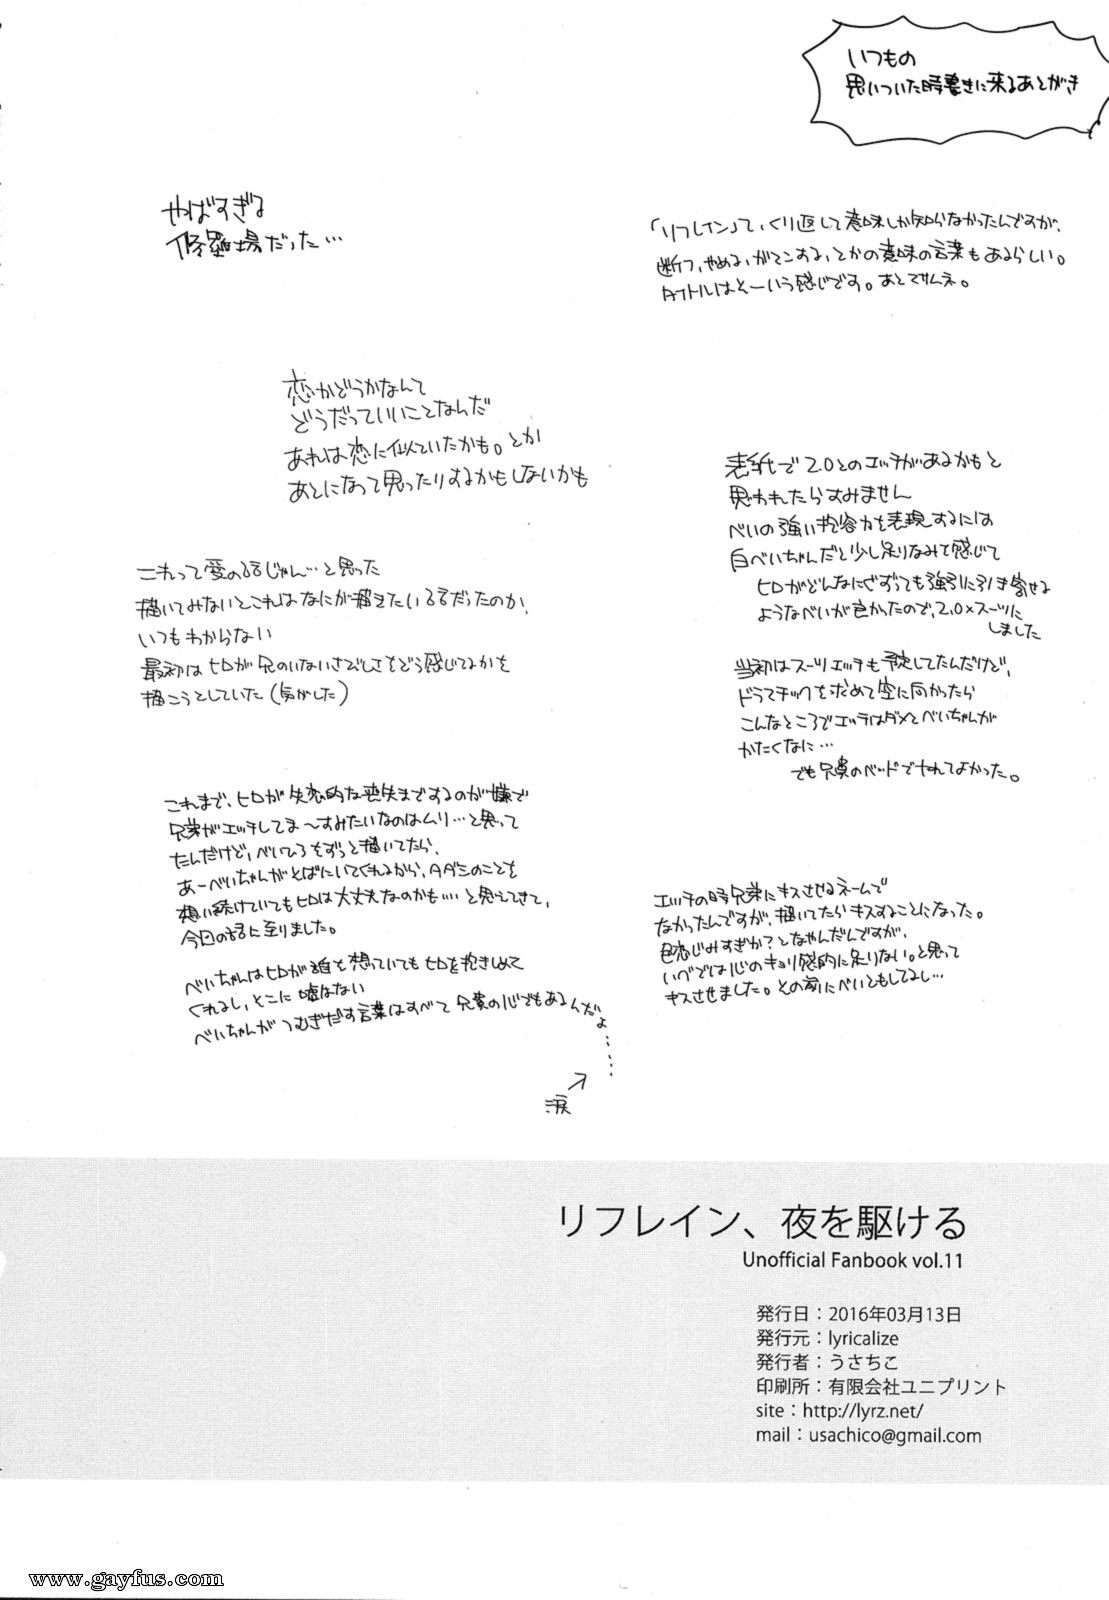 いつもの
思いついた時書きに来るあとがき
やばすぎる
修羅場だった…
「リフレイン」て、くり返して意味しか知らなかったんですが、
断つ、やめる、がまんする、とかの意味の言葉もあるらしい。
タイトルはそーいう感じです。あとでサムネ。
恋かどうかなんて
どうだっていいことなんだ
あれは恋に似ていたかも。とか
あとになって思ったりするかもしないかも
表紙で2.0とのエッチがあるかもと
思われたらすみません
べいの強い包容力を表現するには
白べいちゃんだと少し足りなみて感じて
ヒロがどんなにぐずっても強引に引き寄せる
ようなべいが良かったので、2.0×スーツに
しました
これって愛の話じゃん…と思った
描いてみないとこれはなにが描きたい話だったのか、
いつもわからない
最初はヒロが兄のいないさびしさをどう感じてるかを
描こうとしていた(気がした)
当初はスーツエッチも予定してたんだけど、
ドラマチックを求めて空に向かったら
こんなところでエッチはダメとべいちゃんが
かたくなに…
でも兄貴のベッドでヤれてよかった。
これまで、ヒロが失恋的な喪失までするのが嫌で
兄弟がエッチしてま～すみたいなのはムリ…と思って
たんだけど、べいひろをずっと描いてたら、
あーべいちゃんがそばにいてくれるから、タダシのことを
想い続けていてもヒロは大丈夫なのかも…と思えてきて、
今回の話に至りました。
べいちゃんはヒロが誰を想っていてもヒロを抱きしめて
くれるし、そこに嘘はない
べいちゃんがつむぎだす言葉はすべて兄貴の心でもあるんだよ……
涙
エッチの時兄弟にキスさせるネームで
なかったんですが、描いてたらキスすることになった。
色恋じみすぎか?となやんだんですが、
いべでは心のキョリ感的に足りない。と思って
キスさせました。その前にべいともしてるし…
リフレイン、夜を駆ける
Unofficial Fanbook vol.11
発行日：2016年03月13日
発行元：lyricalize
発行者：うさちこ
印刷所：有限会社ユニプリント
site：http://lyrz.net/
mail：usachico@gmail.com
www.gayfus.com